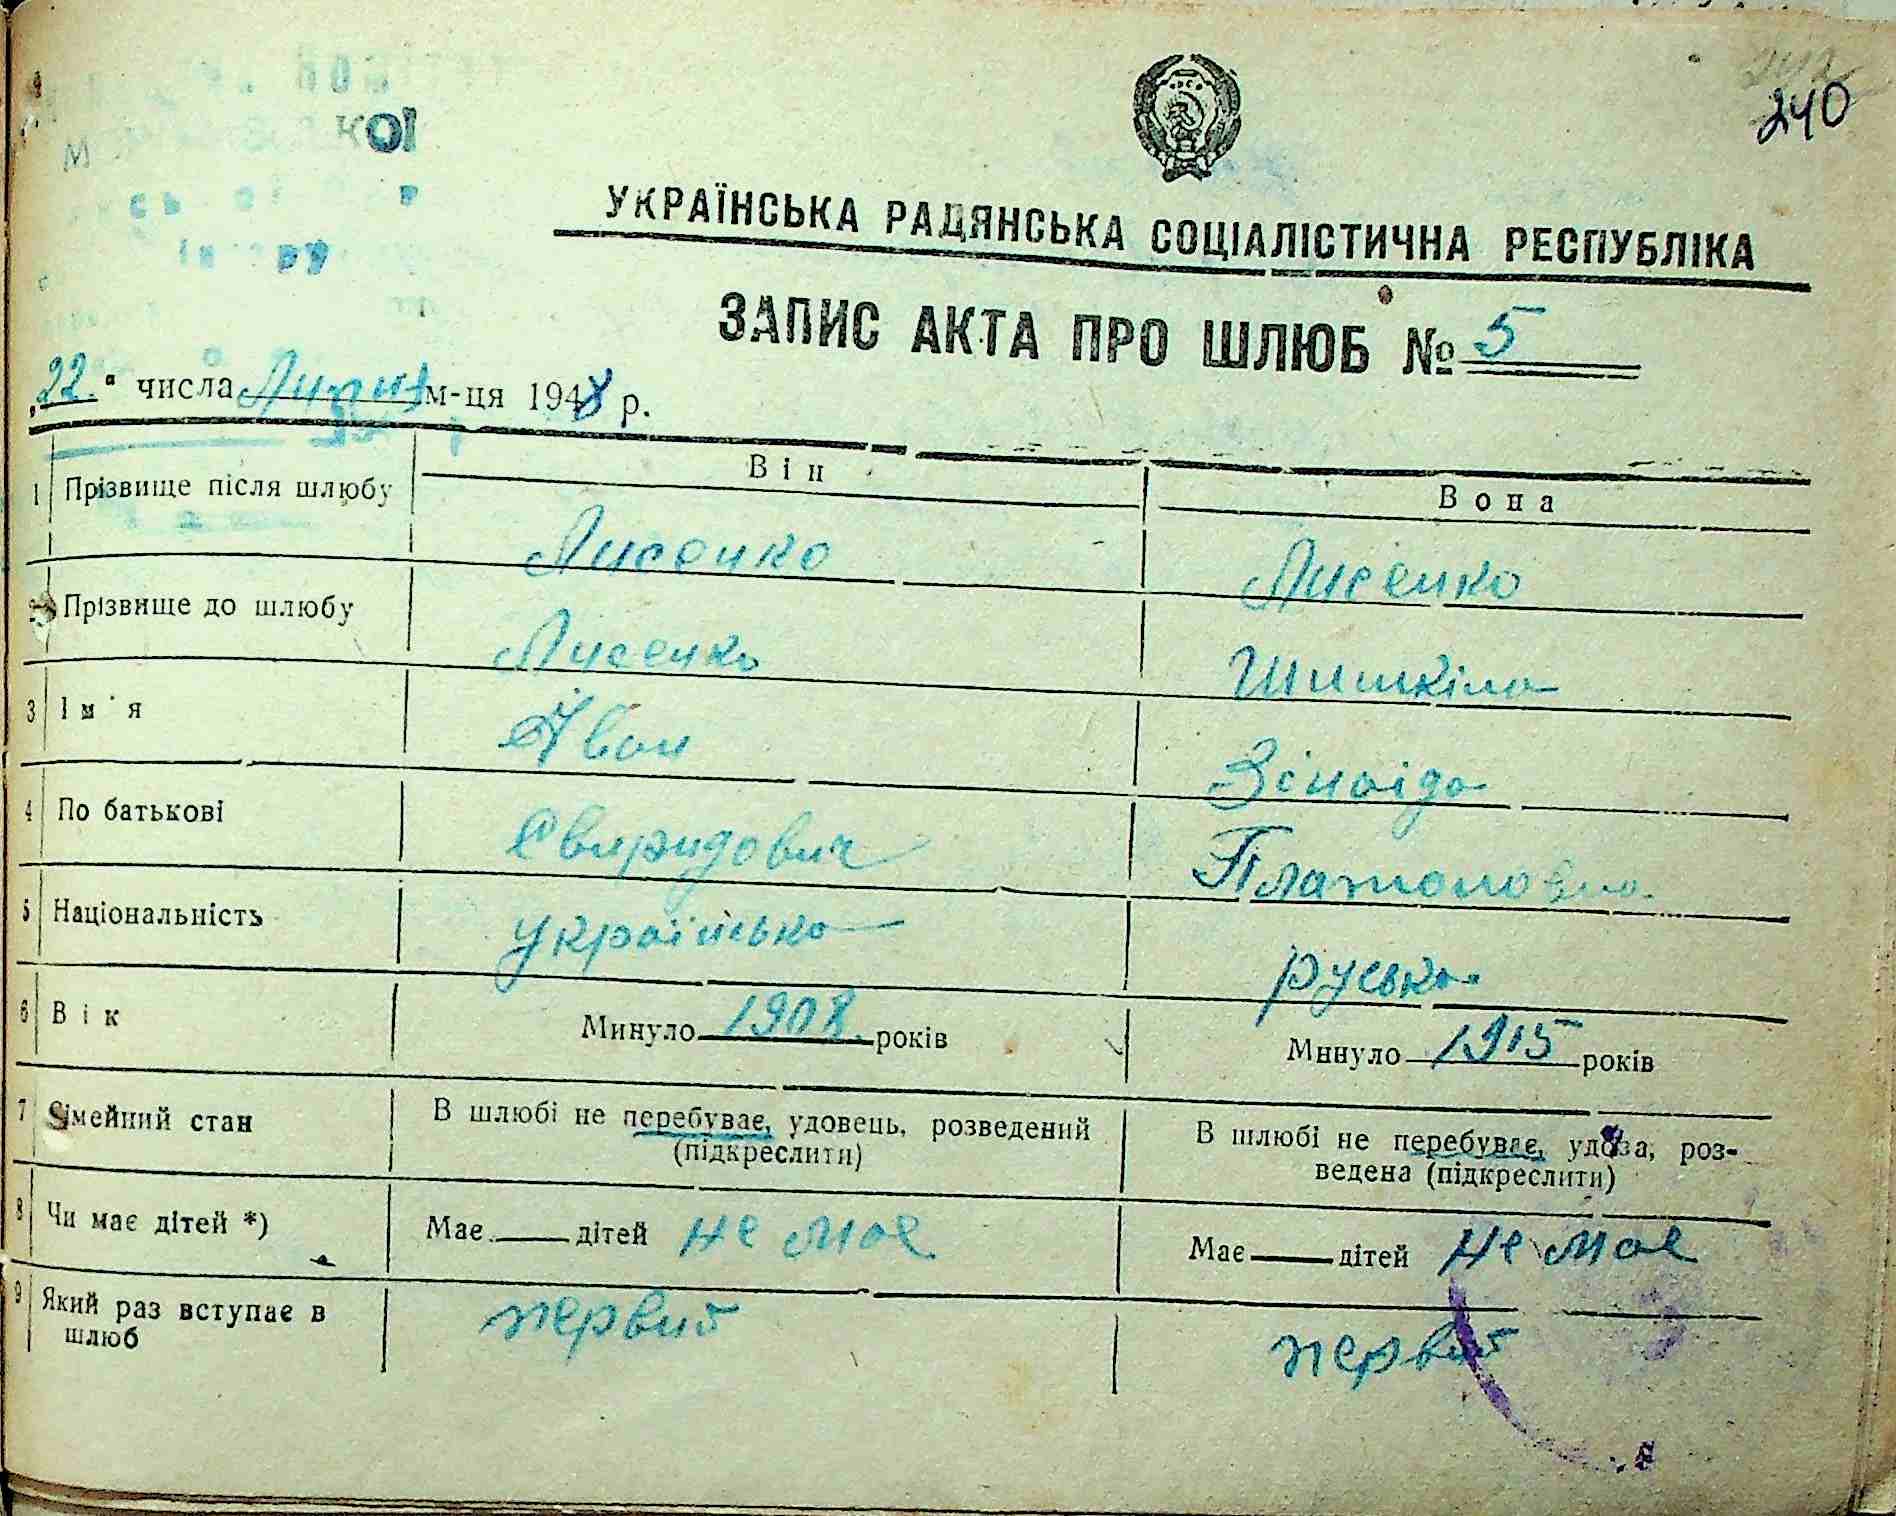 240
УКРАЇНСЬКА РАДЯНСЬКА СОЦІАЛІСТИЧНА РЕСПУБЛІКА
ЗАПИС АКТА ПРО ШЛЮБ № 5
„22." числа Липня м-ця 1948 р.
Він Вона
1 Прізвище після шлюбу Лисенко Лисенко
2 Прізвище до шлюбу Лисенко Шишкіна
3 Ім'я Іван Зінаіда
4 По батькові Свиридович Платоновна.
5 Національність українська руська.
6 Вік Минуло 1908. років Минуло 1915 років
7 Сімейний стан В шлюбі не перебуває, удовець, розведений В шлюбі не перебуває, удова, роз-
(підкреслити) ведена (підкреслити)
8 Чи має дітей *) Має дітей не має Має дітей не має
9 Який раз вступає в первий первий
шлюб